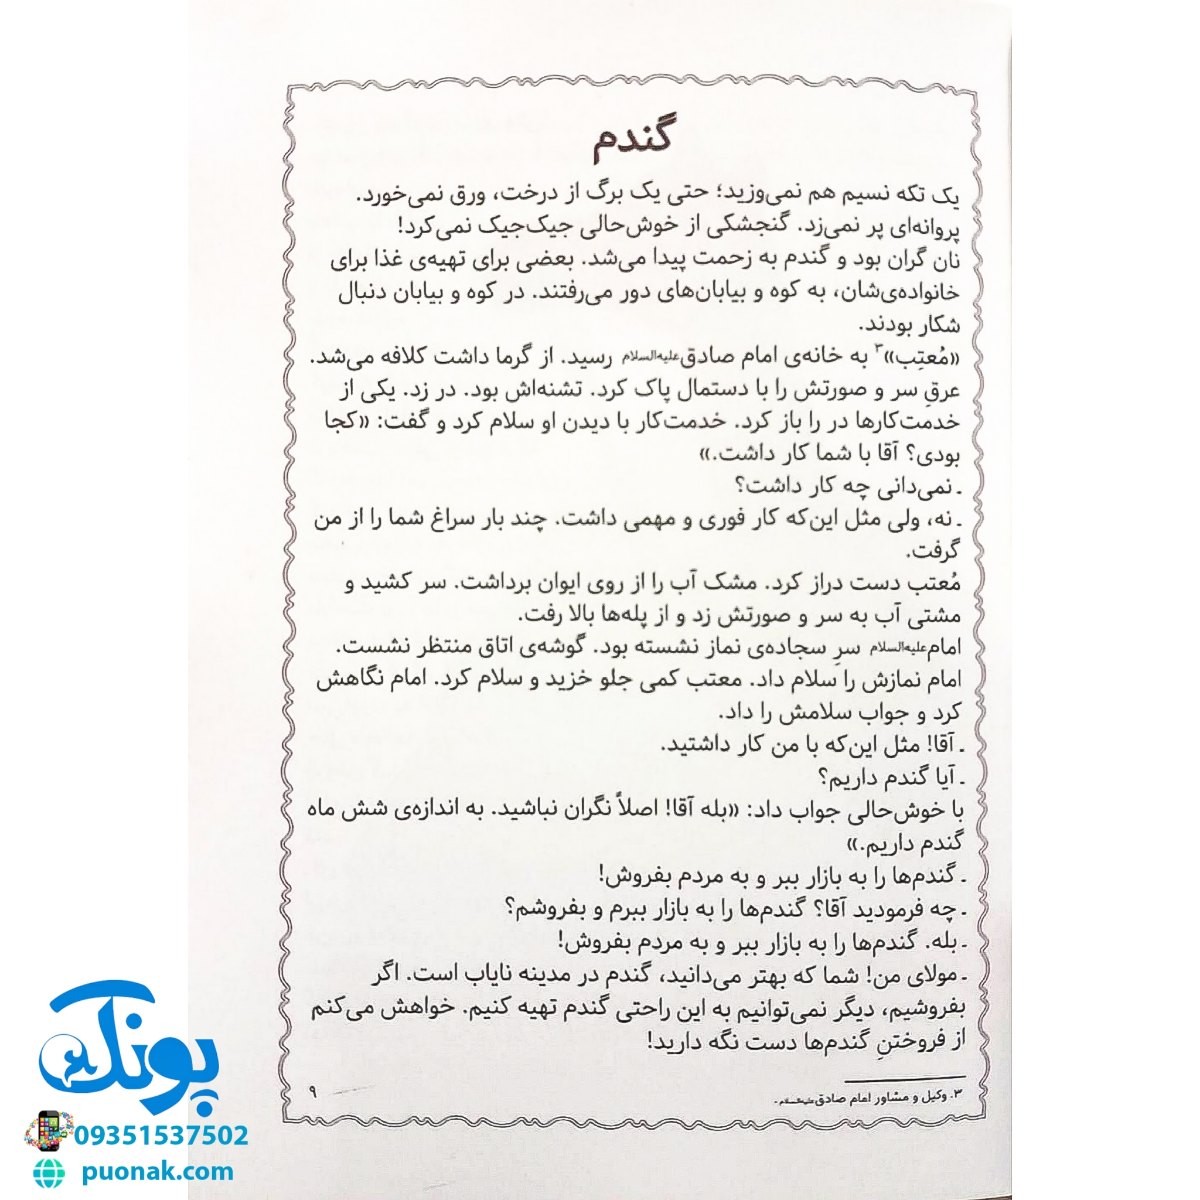 گندم
یک تکه نسیم هم نمی‌وزید؛ حتی یک برگ از درخت، ورق نمی‌خورد.
پروانه‌ای پر نمی‌زد. گنجشکی از خوش‌حالی جیک‌جیک نمی‌کرد!
نان گران بود و گندم به زحمت پیدا می‌شد. بعضی برای تهیه‌ی غذا برای
خانواده‌ی‌شان، به کوه و بیابان‌های دور می‌رفتند. در کوه و بیابان دنبال
شکار بودند.
«مُعتِب»۳ به خانه‌ی امام صادق علیه‌السلام رسید. از گرما داشت کلافه می‌شد.
عرقِ سر و صورتش را با دستمال پاک کرد. تشنه‌اش بود. در زد. یکی از
خدمت‌کارها در را باز کرد. خدمت‌کار با دیدن او سلام کرد و گفت: «کجا
بودی؟ آقا با شما کار داشت.»
ـ نمی‌دانی چه کار داشت؟
ـ نه، ولی مثل این‌که کار فوری و مهمی داشت. چند بار سراغ شما را از من
گرفت.
مُعتب دست دراز کرد. مشک آب را از روی ایوان برداشت. سر کشید و
مشتی آب به سر و صورتش زد و از پله‌ها بالا رفت.
امام علیه‌السلام سرِ سجاده‌ی نماز نشسته بود. گوشه‌ی اتاق منتظر نشست.
امام نمازش را سلام داد. معتب کمی جلو خزید و سلام کرد. امام نگاهش
کرد و جواب سلامش را داد.
ـ آقا! مثل این‌که با من کار داشتید.
ـ آیا گندم داریم؟
با خوش‌حالی جواب داد: «بله آقا! اصلاً نگران نباشید. به اندازه‌ی شش ماه
گندم داریم.»
ـ گندم‌ها را به بازار ببر و به مردم بفروش!
ـ چه فرمودید آقا؟ گندم‌ها را به بازار ببرم و بفروشم؟
ـ بله. گندم‌ها را به بازار ببر و به مردم بفروش!
ـ مولای من! شما که بهتر می‌دانید، گندم در مدینه نایاب است. اگر
بفروشیم، دیگر نمی‌توانیم به این راحتی گندم تهیه کنیم. خواهش می‌کنم
از فروختنِ گندم‌ها دست نگه دارید!
۳. وکیل و مشاور امام صادق علیه‌السلام.
۹
پونک
09351537502
puonak.com